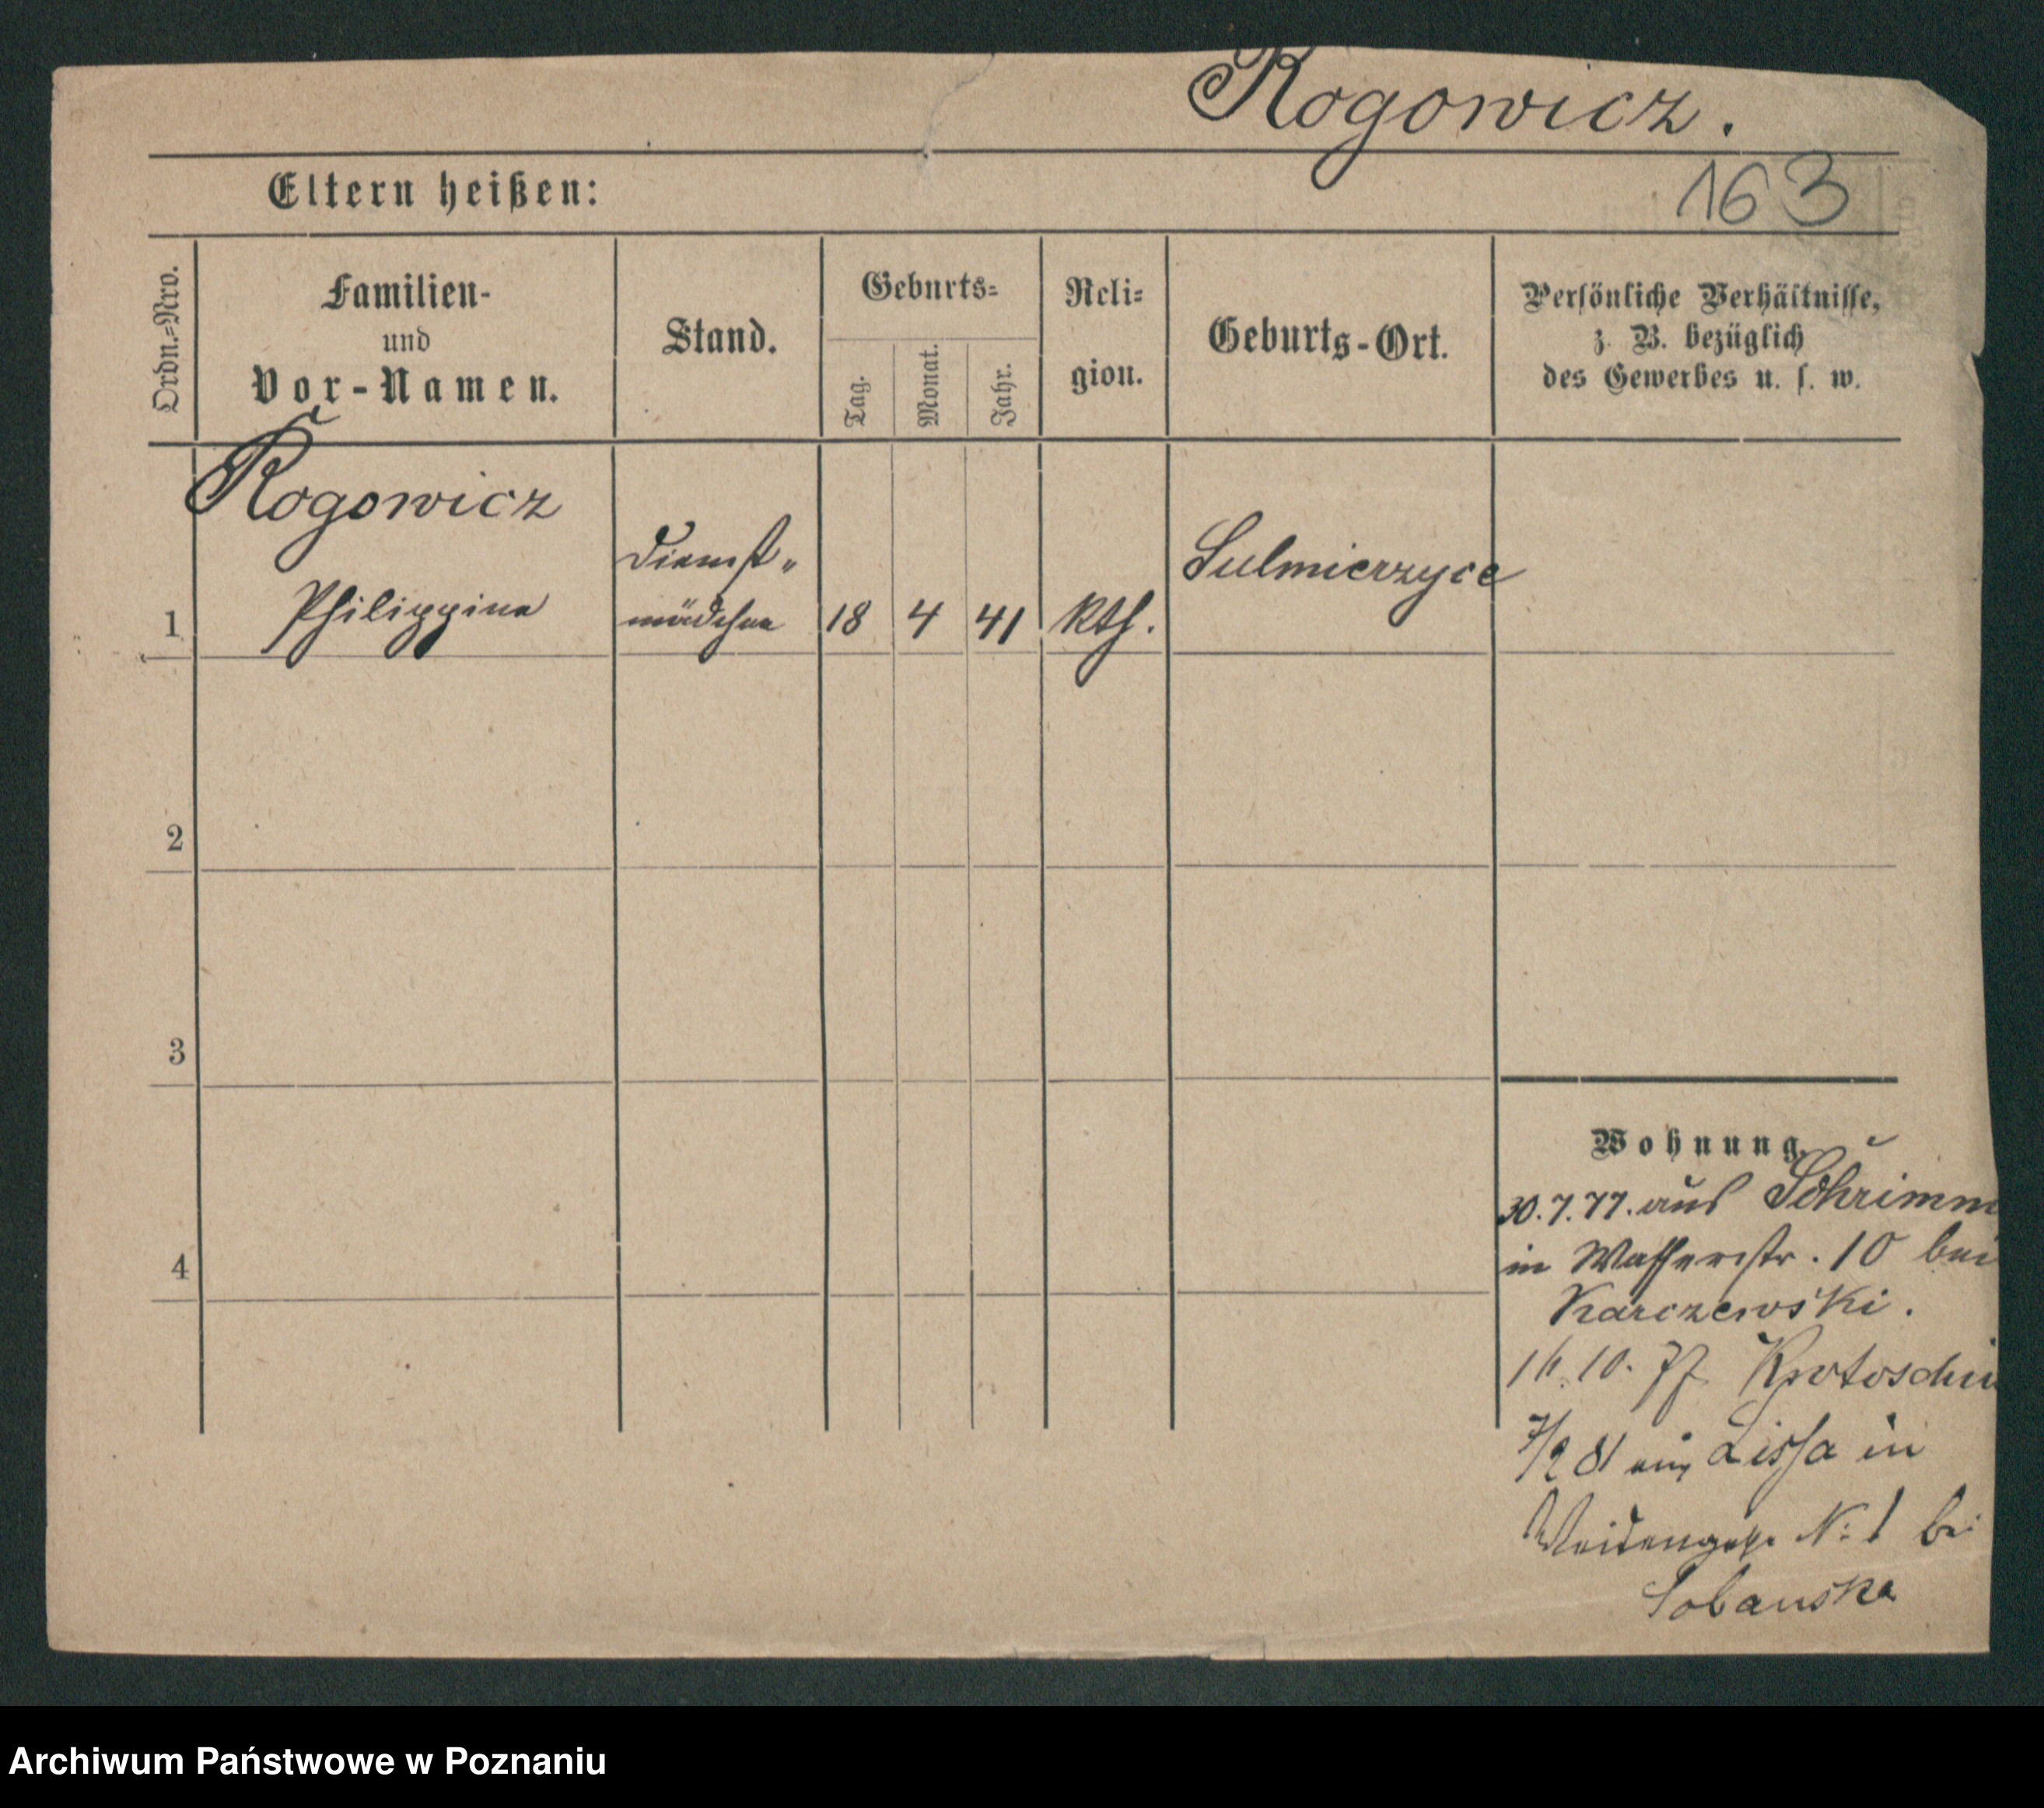 Rogowicz.
163
Eltern heißen:
Ordn.=Nro.
Familien-
und
Vor-Namen.
Stand.
Geburts=
Tag.
Monat.
Jahr.
Reli=
gion.
Geburts-Ort.
Persönliche Verhältnisse,
z. B. bezüglich
des Gewerbes u. s. w.
Rogowicz
Philippina
Dienst„
mädchen
1
18
4
41
kth.
Sulmierzyce
2
3
4
Wohnung.
30.7.77. aus Schrimm
in Wasserstr. 10 bei
Karczewski.
10. 77 Krotoschin
7/2 81 aus Lissa in
Weidengasse N: 1 bei
Sobanska
Archiwum Państwowe w Poznaniu